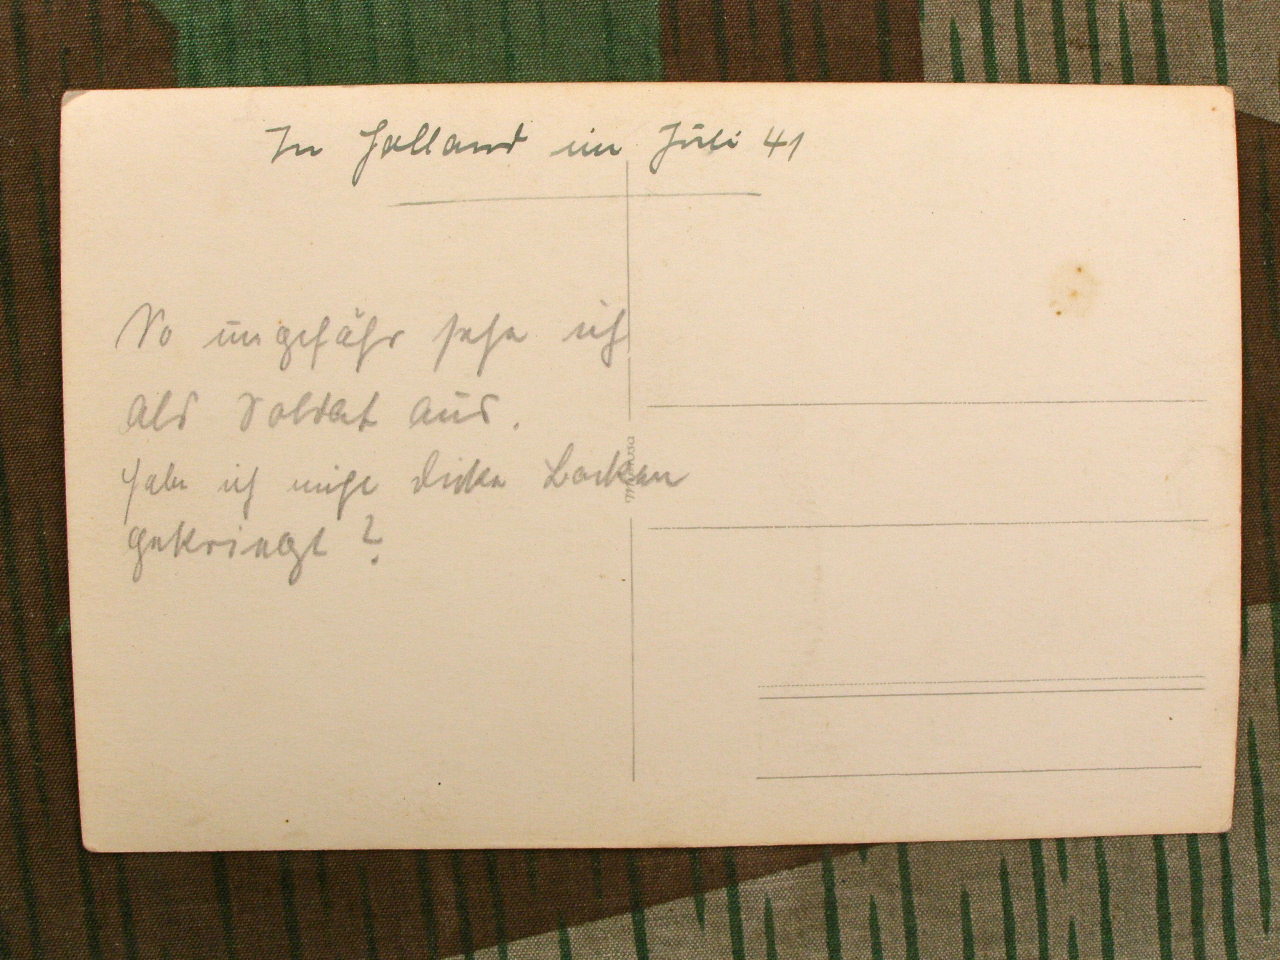 In Holland im Juli 41
So ungefähr sehe ich
als Soldat aus.
Habe ich nicht dicke Backen
gekriegt?
Mimosa